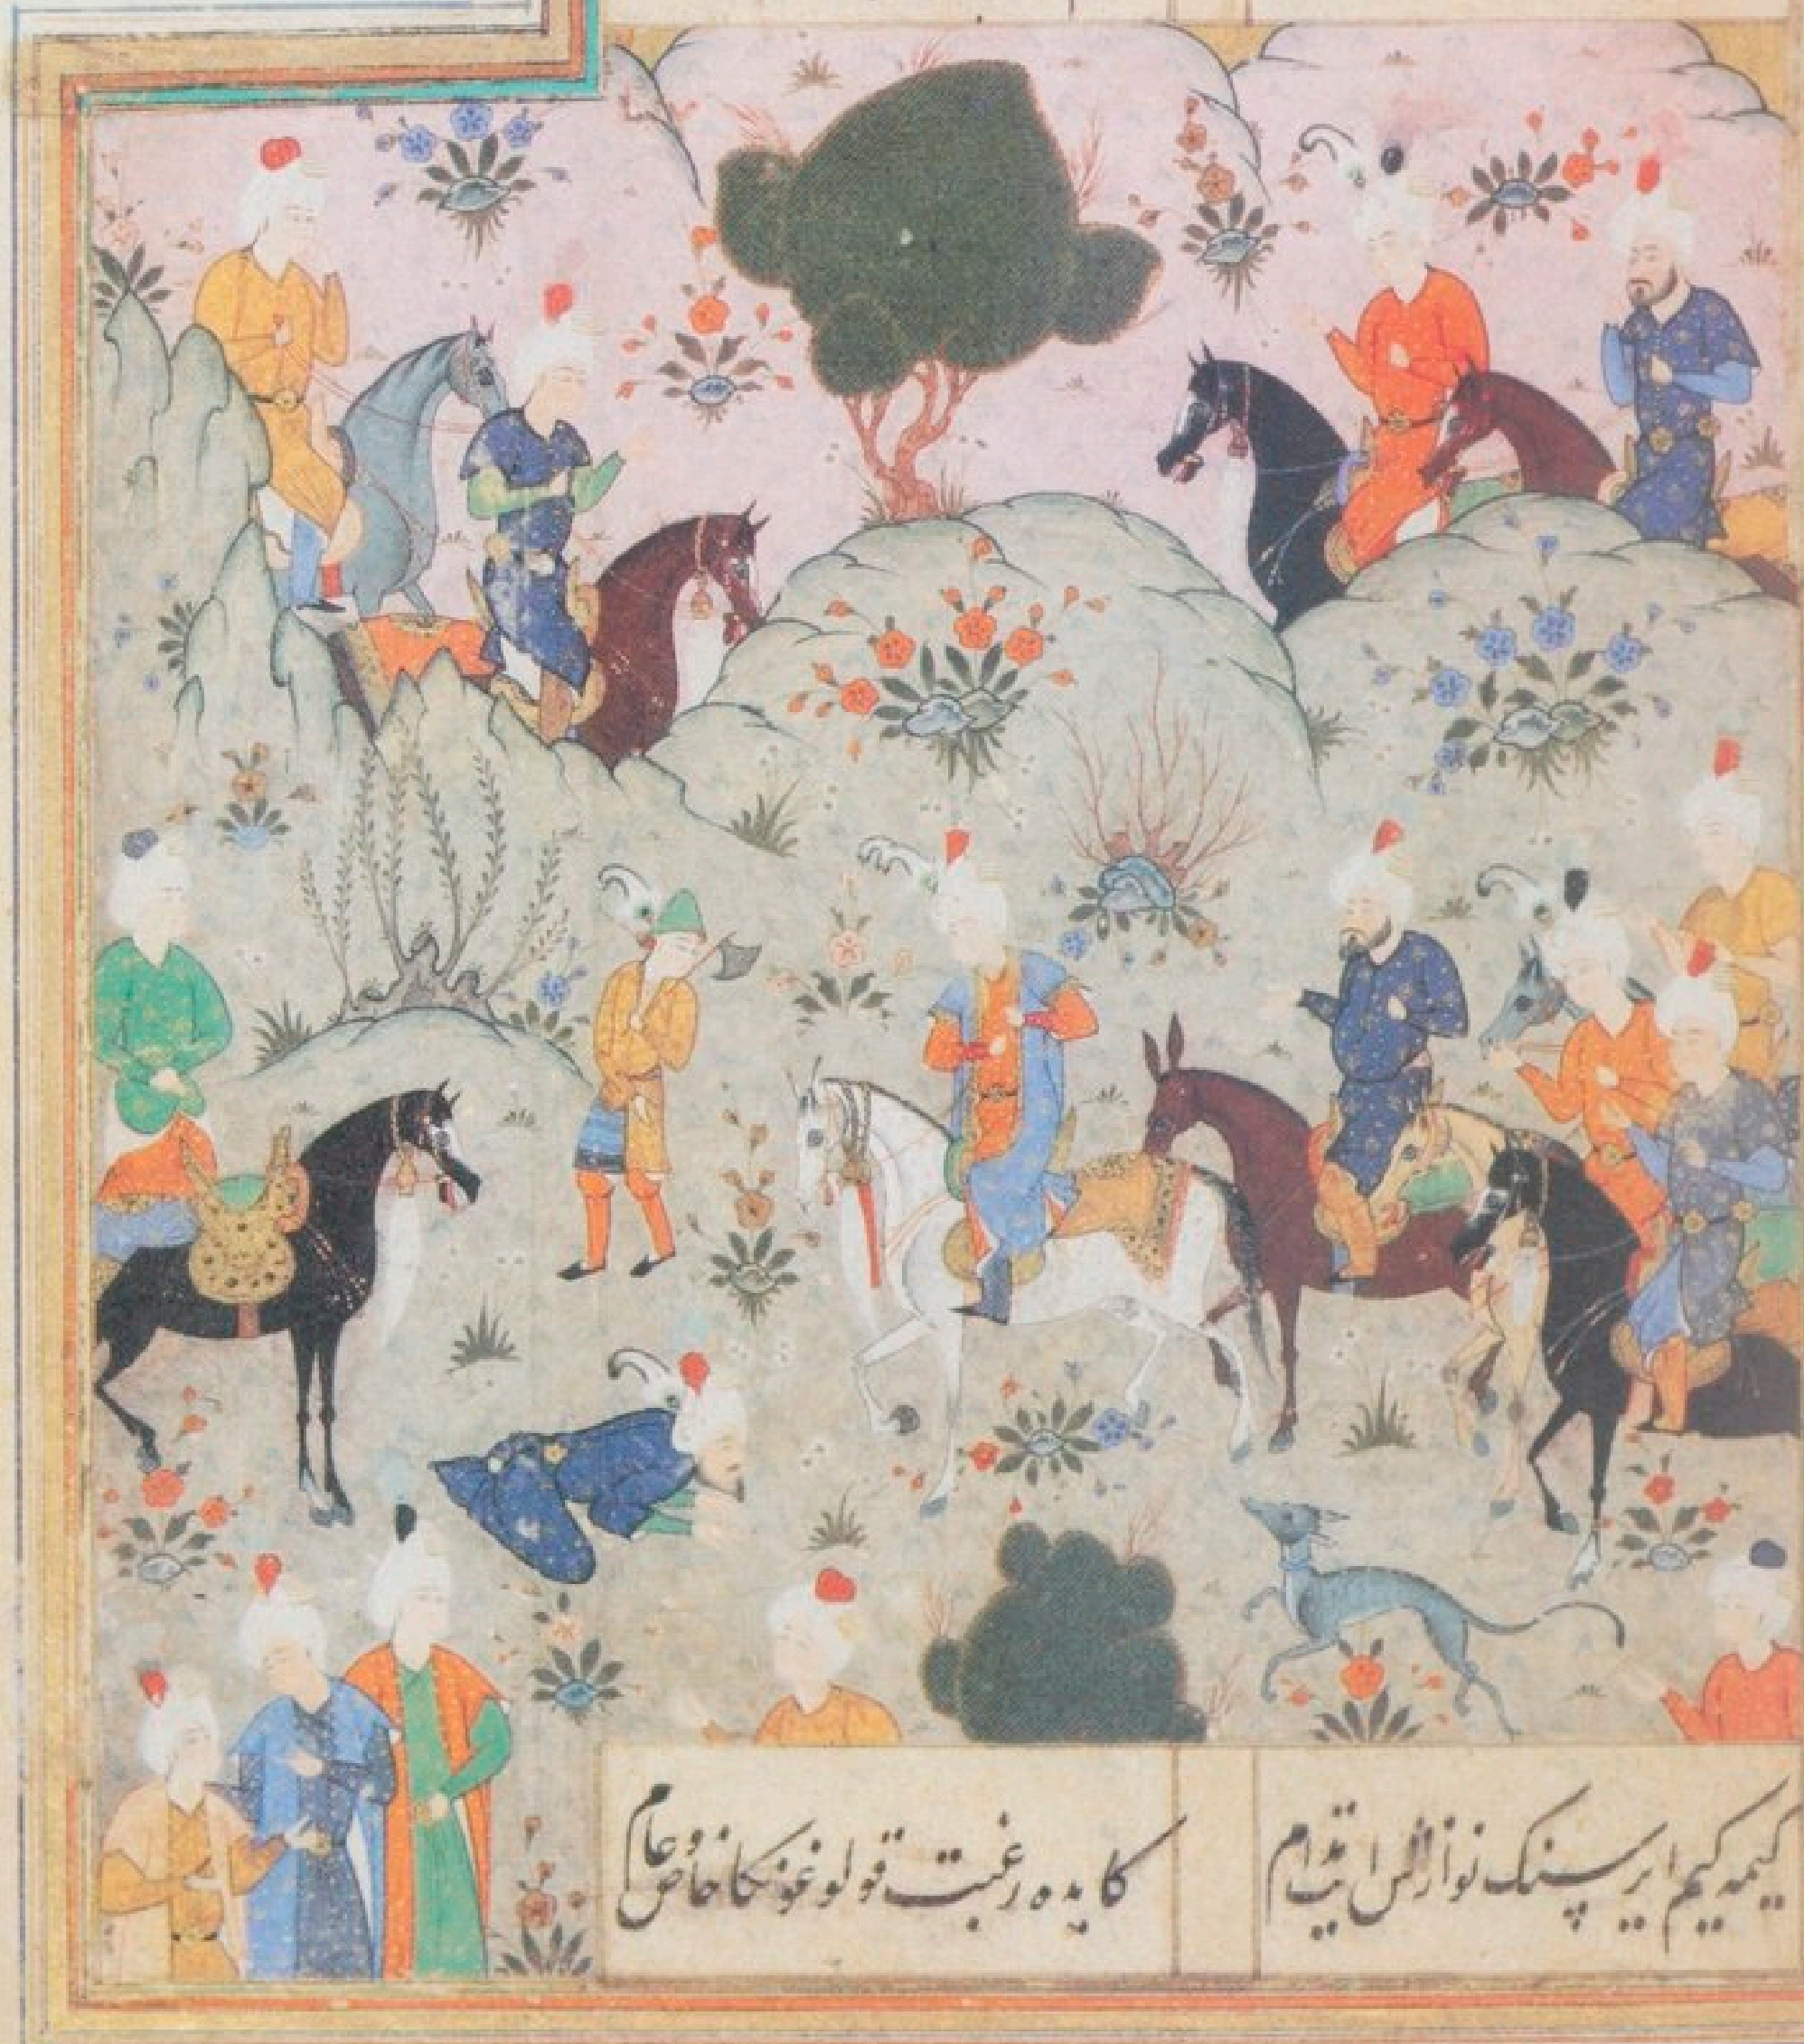 کیمه کیم ایر سنک نوازش
کایده رغبت قولوغونکا خاص و عام